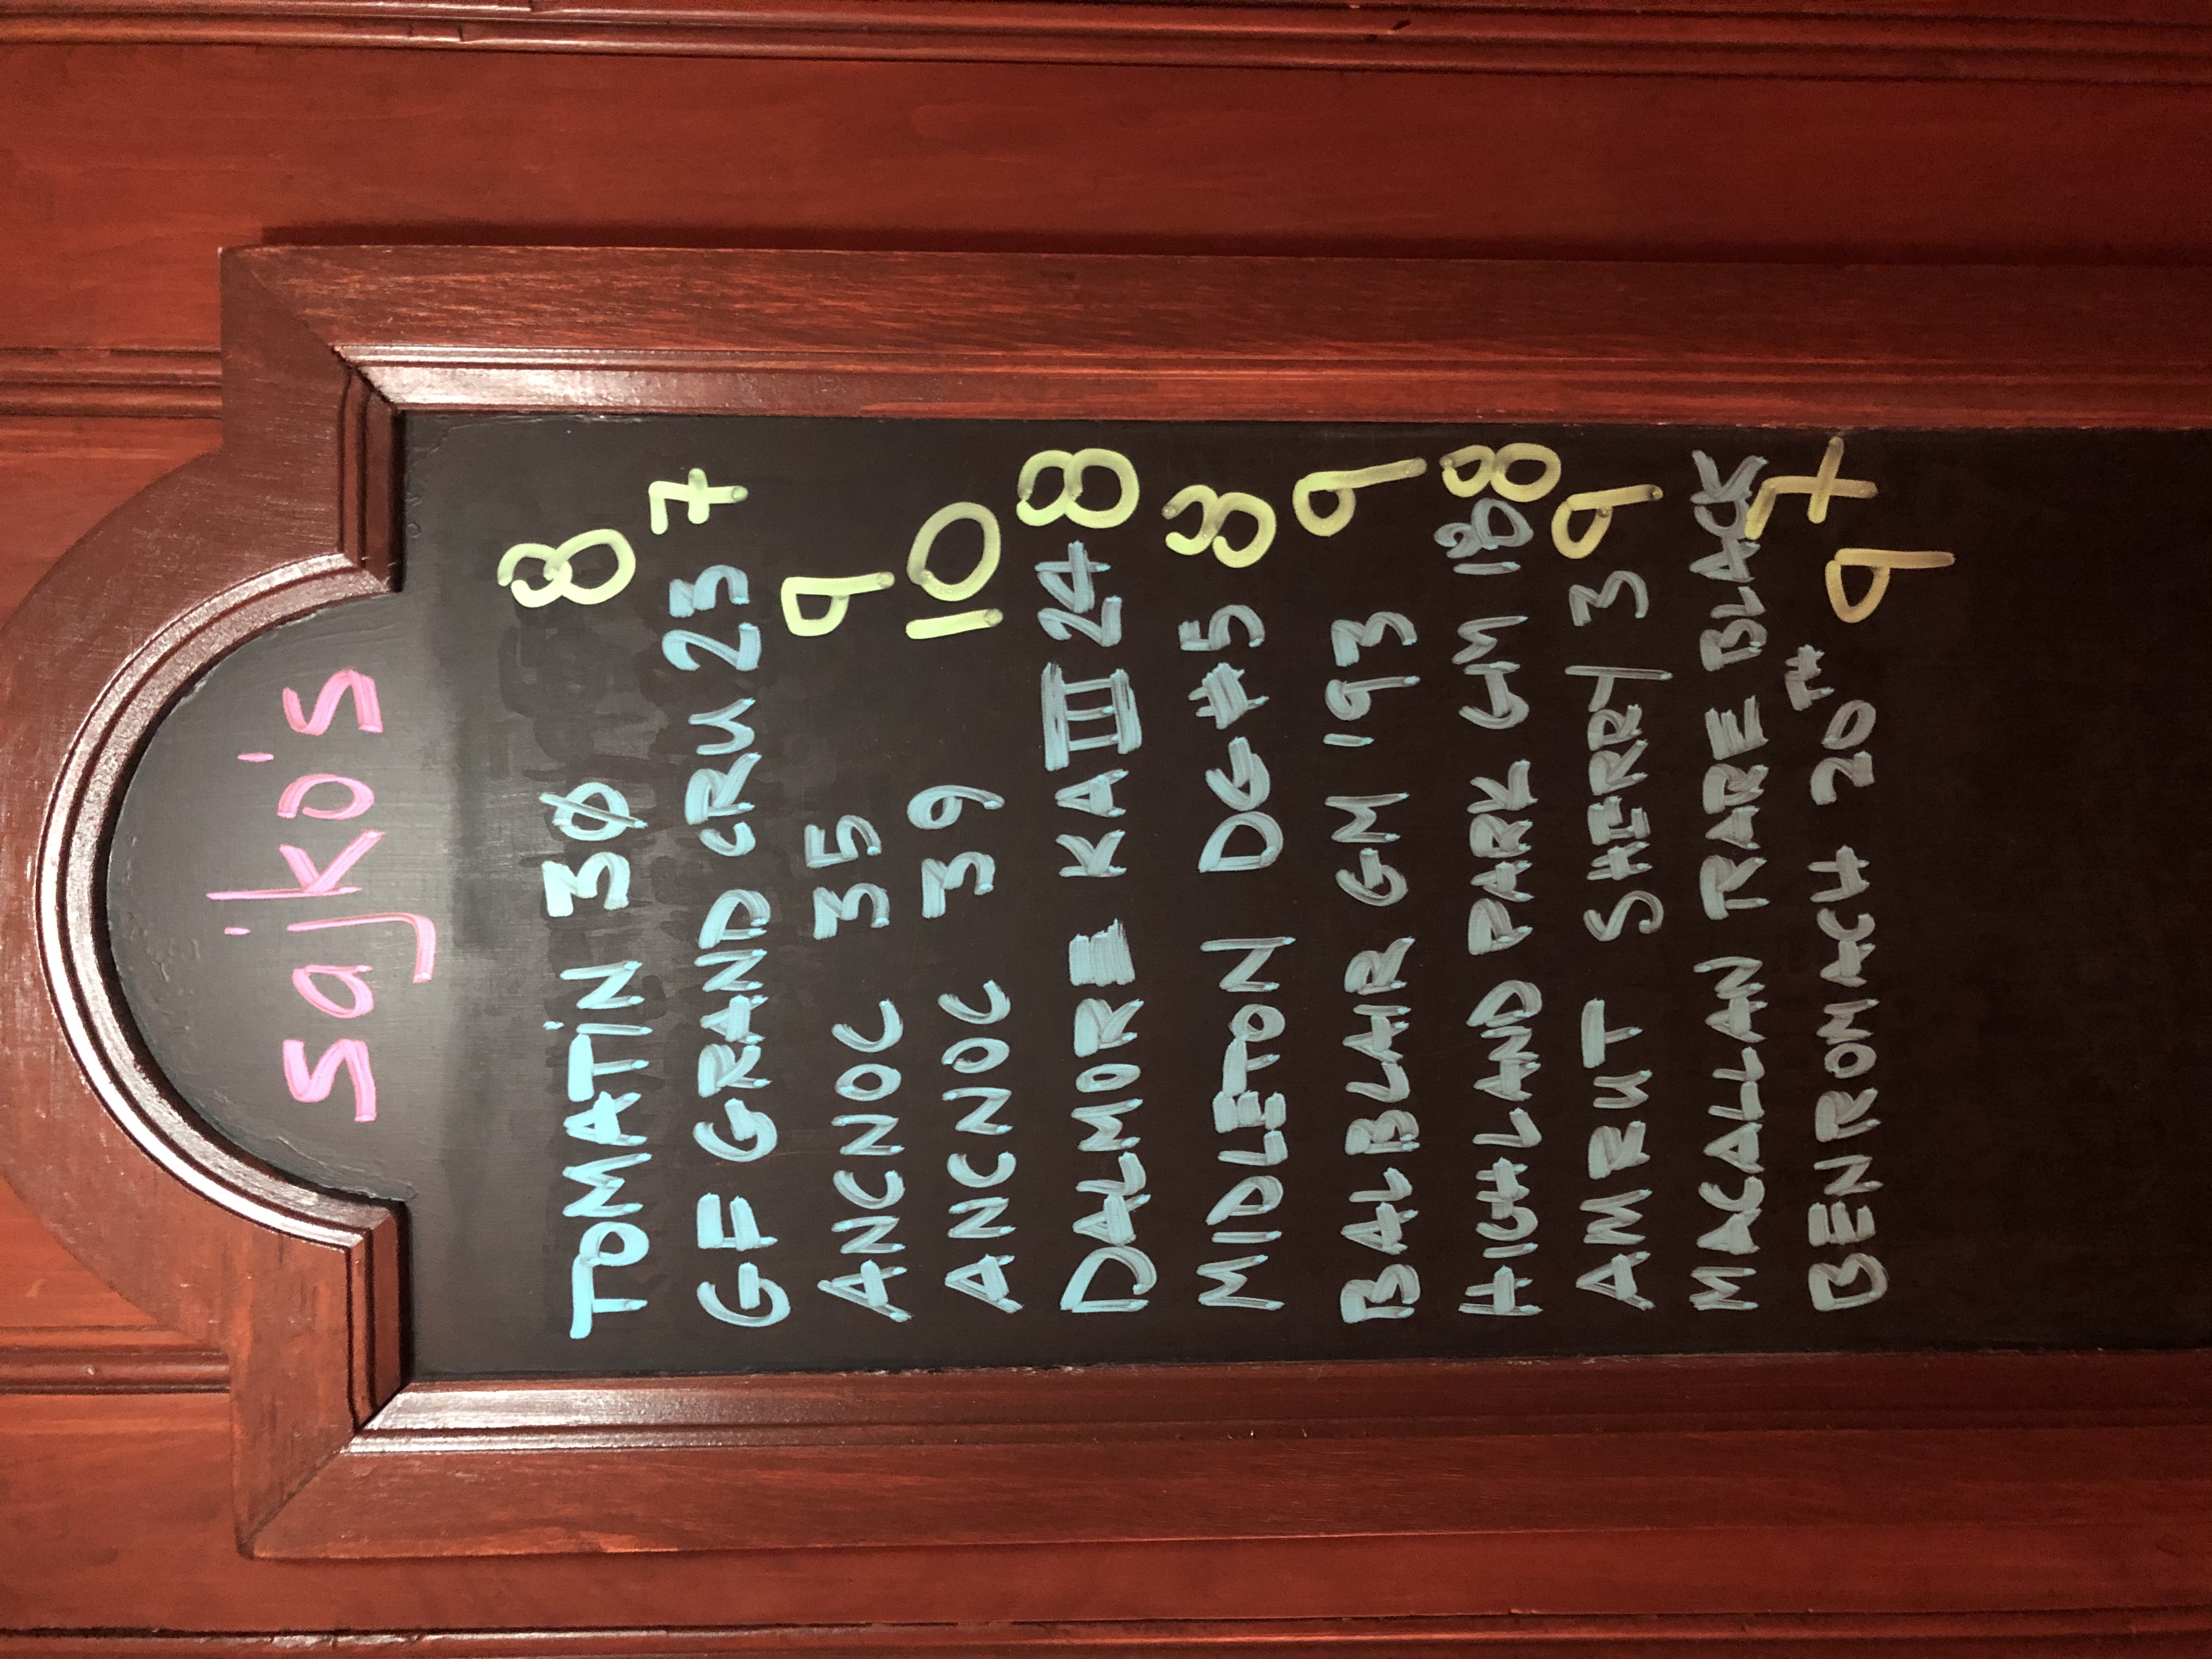 sajko's
TOMATIN 30 8
GF GRAND CRU 23 7
ANCNOC 35 9
ANCNOC 39 10
DALMORE KA III 24 8
MIDLETON DG#5 8
BALBLAIR GM 193 9
HIGHLAND PARK GM 18 8
AMRUT SHERRY 3 9
MACALLAN RARE BLACK 7
BENROMACH 20TH 9